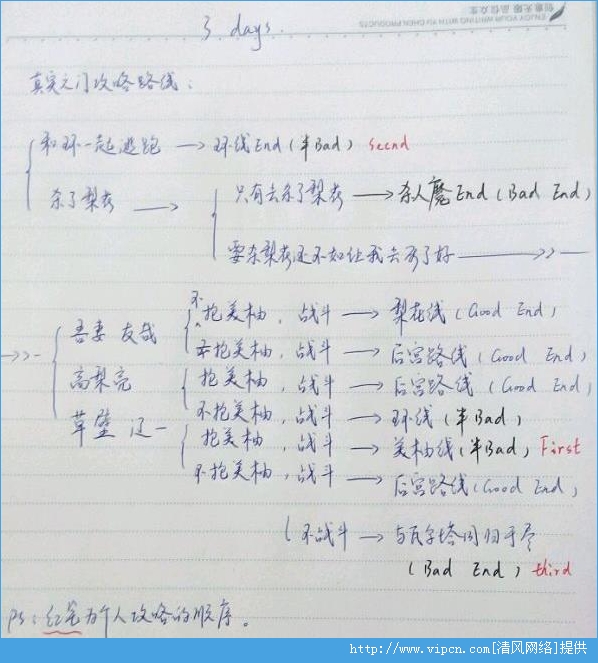 创意无限 品信众生
ENJOY YOUR WRITING WITH YU CHEN PRODUCTS
3 days.
真实之门攻略路线：
和环一起逃跑 → 环线End(半Bad) Secnd
杀了梨花 → 只有去杀了梨花 → 杀人魔End (Bad End)
要杀梨花还不如让我去死了好 →>>—
→>>- 吾妻 友哉 不抱美柚，战斗 → 梨花线(Good End)
不抱美柚，战斗 → 后宫路线(Good End)
高梨亮 抱美柚，战斗 → 后宫路线(Good End)
不抱美柚，战斗 → 环线(半Bad)
草壁 辽一 抱美柚，战斗 → 美柚线(半Bad) First
不抱美柚，战斗 → 后宫路线(Good End)
不战斗 → 与瓦尔塔同归于尽
(Bad End) third
PS：红笔为个人攻略的顺序。
http://www.vipcn.com[清风网络]提供